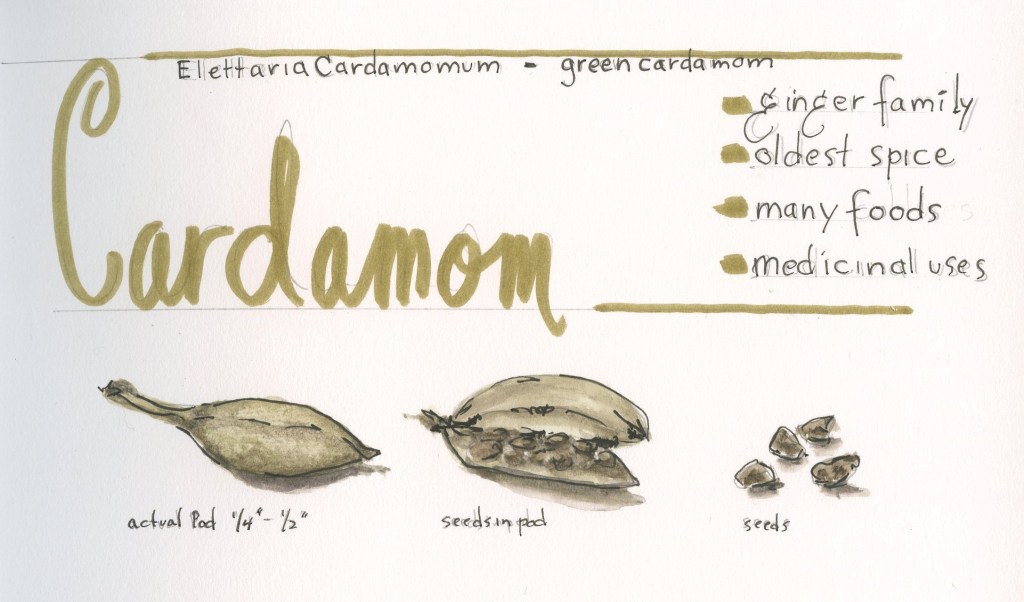 Elettaria Cardamomum - green cardamom
Cardamom
ginger family
oldest spice
many foods
medicinal uses
actual Pod 1/4" - 1/2"
seeds in pod
seeds